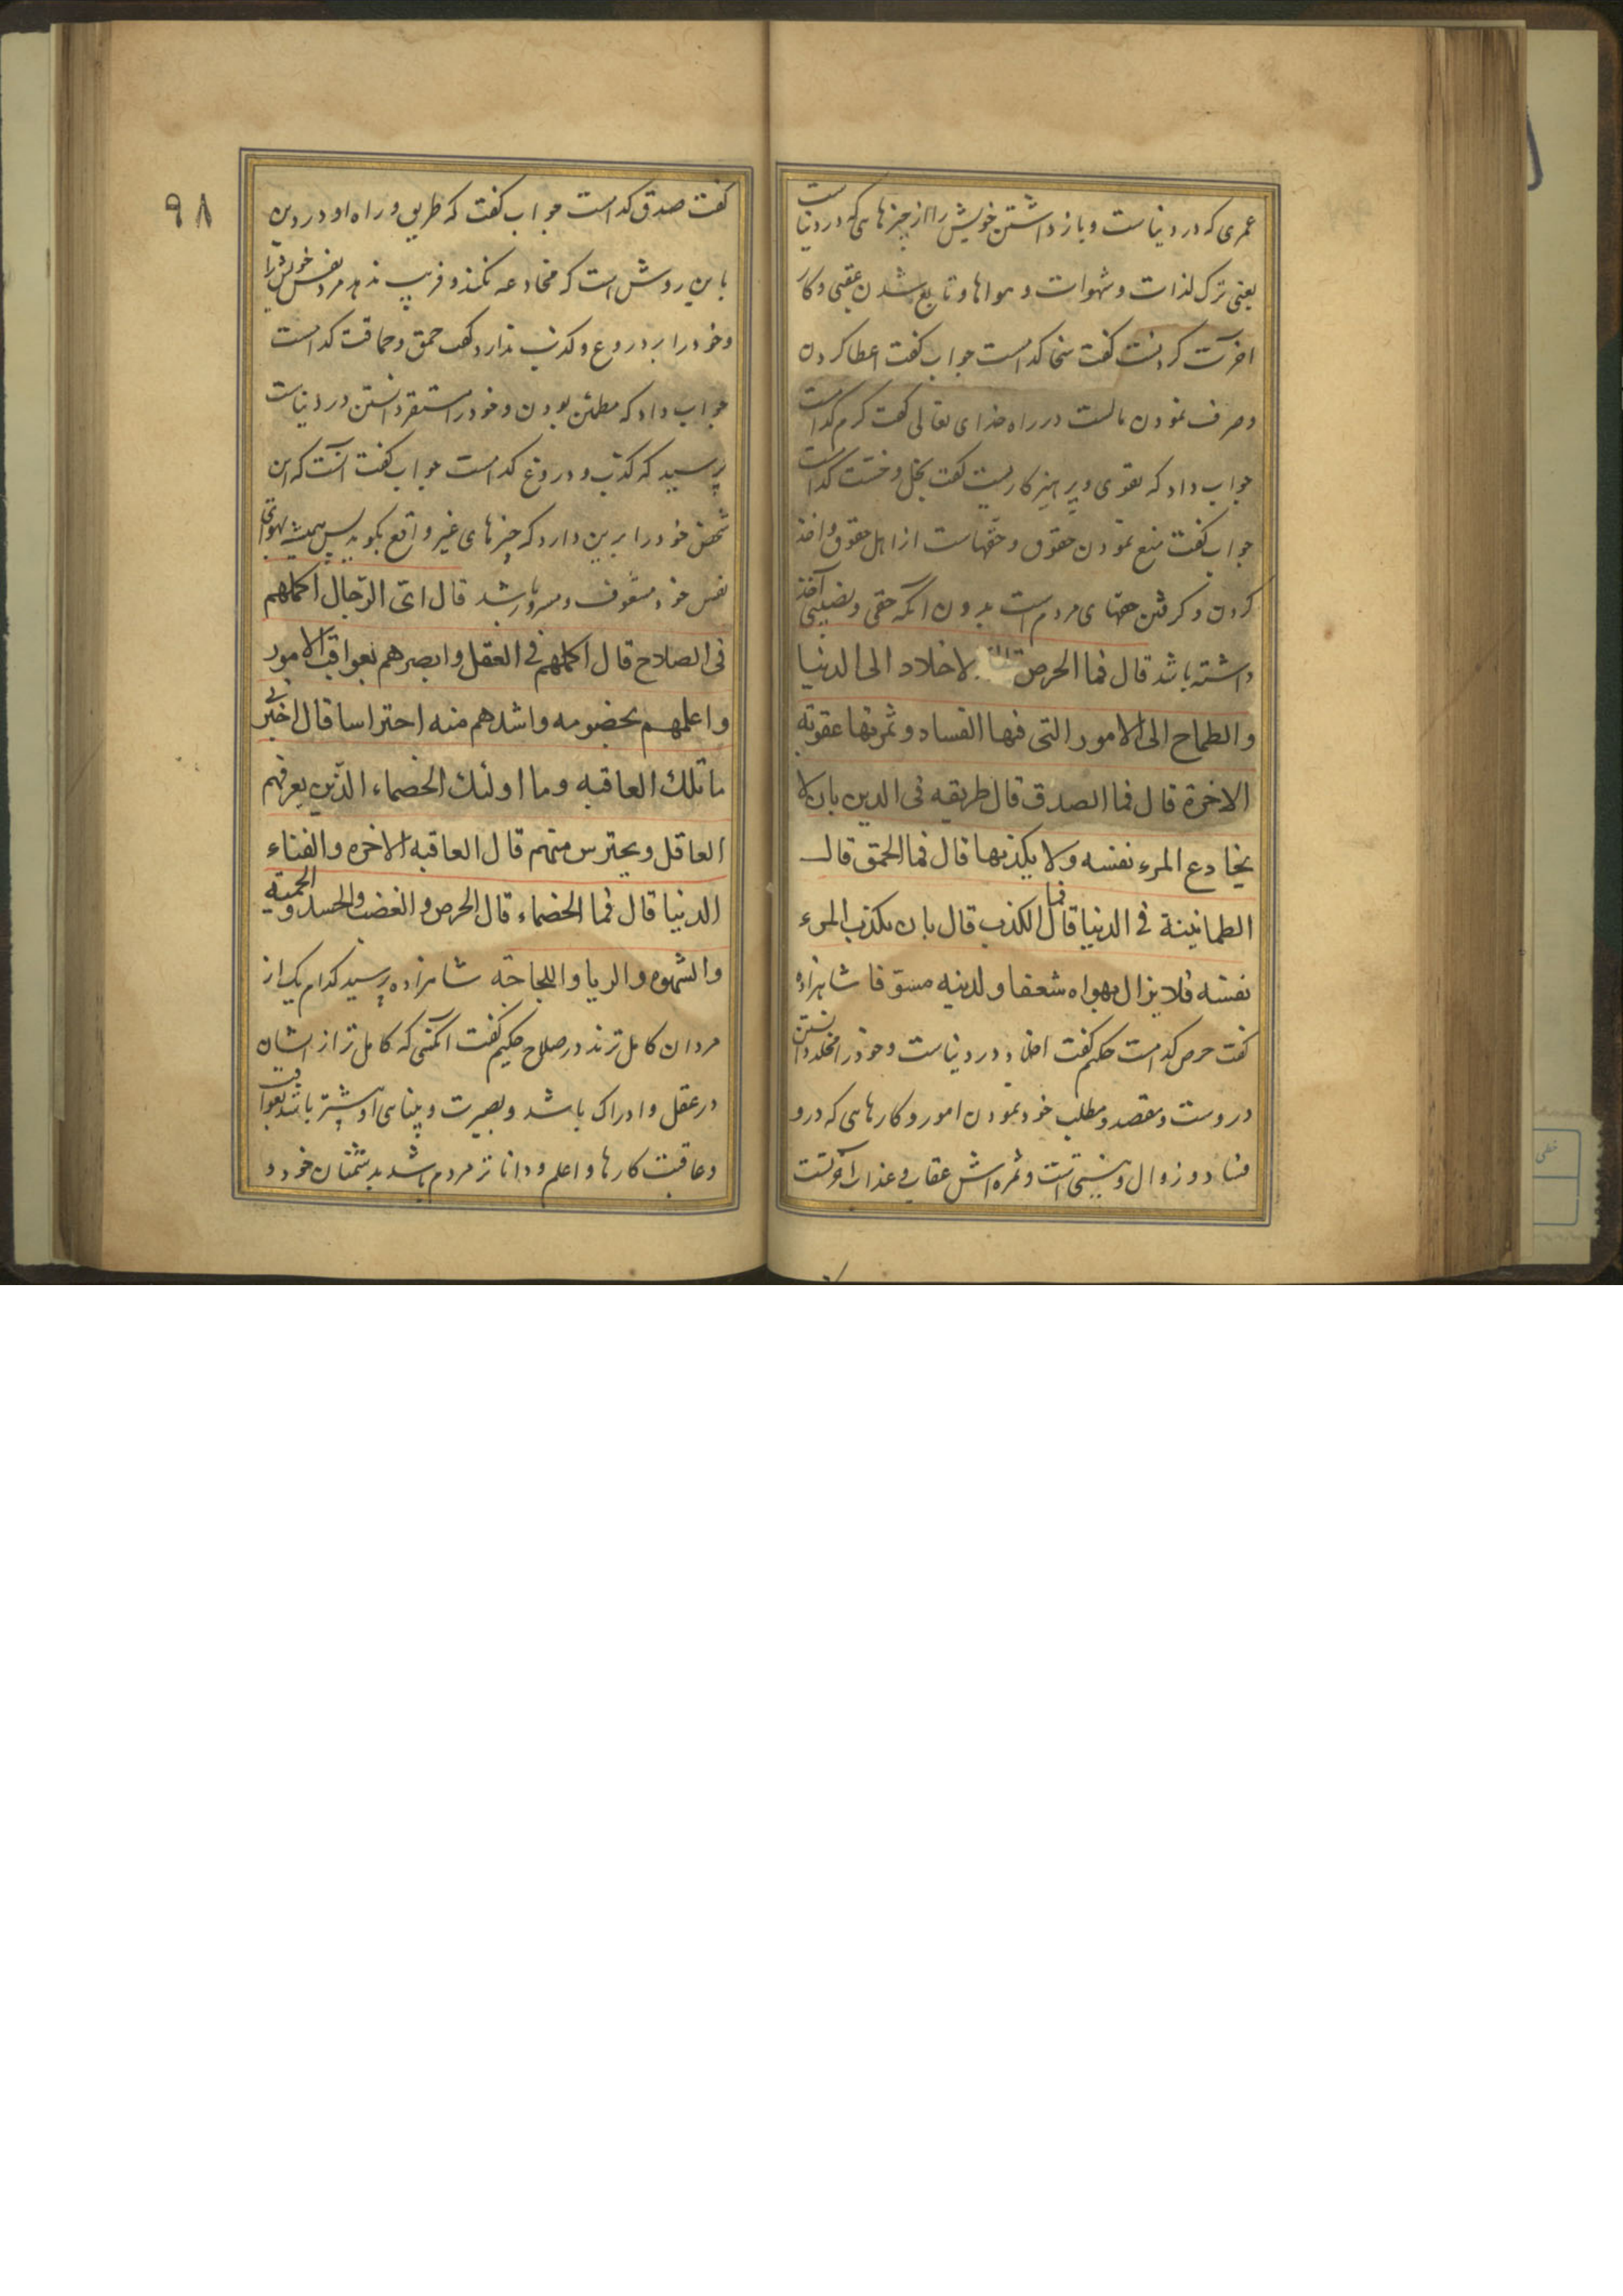 عمری که در دنیاست و باز داشتن خویش را از چیزهایی که در دنیاست
یعنی ترک لذات و شهوات و هواها و تابع شدن عقبی و کار
اخرت کردنست کفت سخا کدامست جواب کفت اعطا کردن
و صرف نمودن مالست در راه خدای تعالی کفت کرم کدامست
جواب داد که تقوی و پرهیزکاریست کفت بخل و خسّت کدامست
جواب کفت منع نمودن حقوق و حقهاست از اهل حقوق و اخذ
کردن و کرفتن حقهای مردم است بدون انکه حقی و نصیبی
داشته باشد قال فما الحرص قال الاخلاد الی الدنیا
والطماح الی الامور التی فیها الفساد وثمرتها عقوبة
الاخرة قال فما الصدق قال طریقه فی الدین بان لا
یخادع المرء نفسه ولا یکذبها قال فما الحمق قال
الطمانینة فی الدنیا قال فما الکذب قال بان یکذب المرء
نفسه فلا یزال بهواه شعفا ولدینه مسوّفا شاهزاده
کفت حرص کدامست حکیم کفت اخلاد در دنیاست و خود را مخلد دانستن
دروست و مقصد و مطلب خود نمودن امور و کارهایی که درو
فساد و زوال و نیستی است و ثمره اش عقاب و عذاب آخرتست
۹۸
کفت صدق کدامست جواب کفت که طریق و راه او در دین
باین روش است که مخادعه نکند و فریب ندهد مرد نفس خویش را
و خود را بر دروغ و کذب ندارد کفت حمق و حماقت کدامست
جواب داد که مطمئن بودن و خود را مستقر دانستن در دنیاست
پرسید که کذب و دروغ کدامست جواب کفت آنست که این
شخص خود را برین دارد که چیزهای غیر واقع بکوید پس همیشه بهوای
نفس خود مشعوف و مسرور باشد قال ای الرّجال اکملهم
فی الصلاح قال اکملهم فی العقل وابصرهم بعواقب الامور
واعلمهم بخصومه واشدهم منه احتراسا قال اخبرنی
ما تلک العاقبه وما اولئک الخصماء الّذین یعرفهم
العاقل ویحترس منهم قال العاقبه الاخره والفناء
الدنیا قال فما الخصماء قال الحرص والغضب والحسد والحمیّه
والشهوه والریا واللجاجة شاهزاده پرسید کدام یک از
مردان کامل ترند در صلاح حکیم کفت آنکسی که کامل تر از ایشان
در عقل و ادراک باشد و بصیرت و بینایی او بیشتر باشد بعواقب
و عاقبت کارها و اعلم و داناتر مردم باشد بدشمنان خود و
خطی